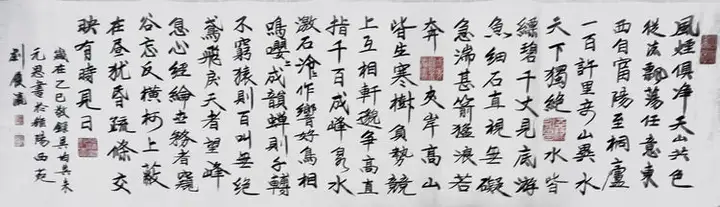 風煙俱淨天山共色
從流飄荡任意東
西自富陽至桐廬
一百許里奇山異水
天下獨絶水皆
縹碧千丈見底游
魚細石直視無礙
急湍甚箭猛浪若
奔夾岸高山
皆生寒樹負勢競
上互相軒邈争高直
指千百成峰泉水
激石泠〻作響好鳥相
鳴嚶〻成韻蟬則千轉
不窮猿則百叫無绝
鳶飛戾天者望峰
息心經綸世務者窺
谷忘反橫柯上蔽
在昼犹昏疏條交
映有時見日
歲在乙巳敬録吴均與朱
元思書於雒陽西苑